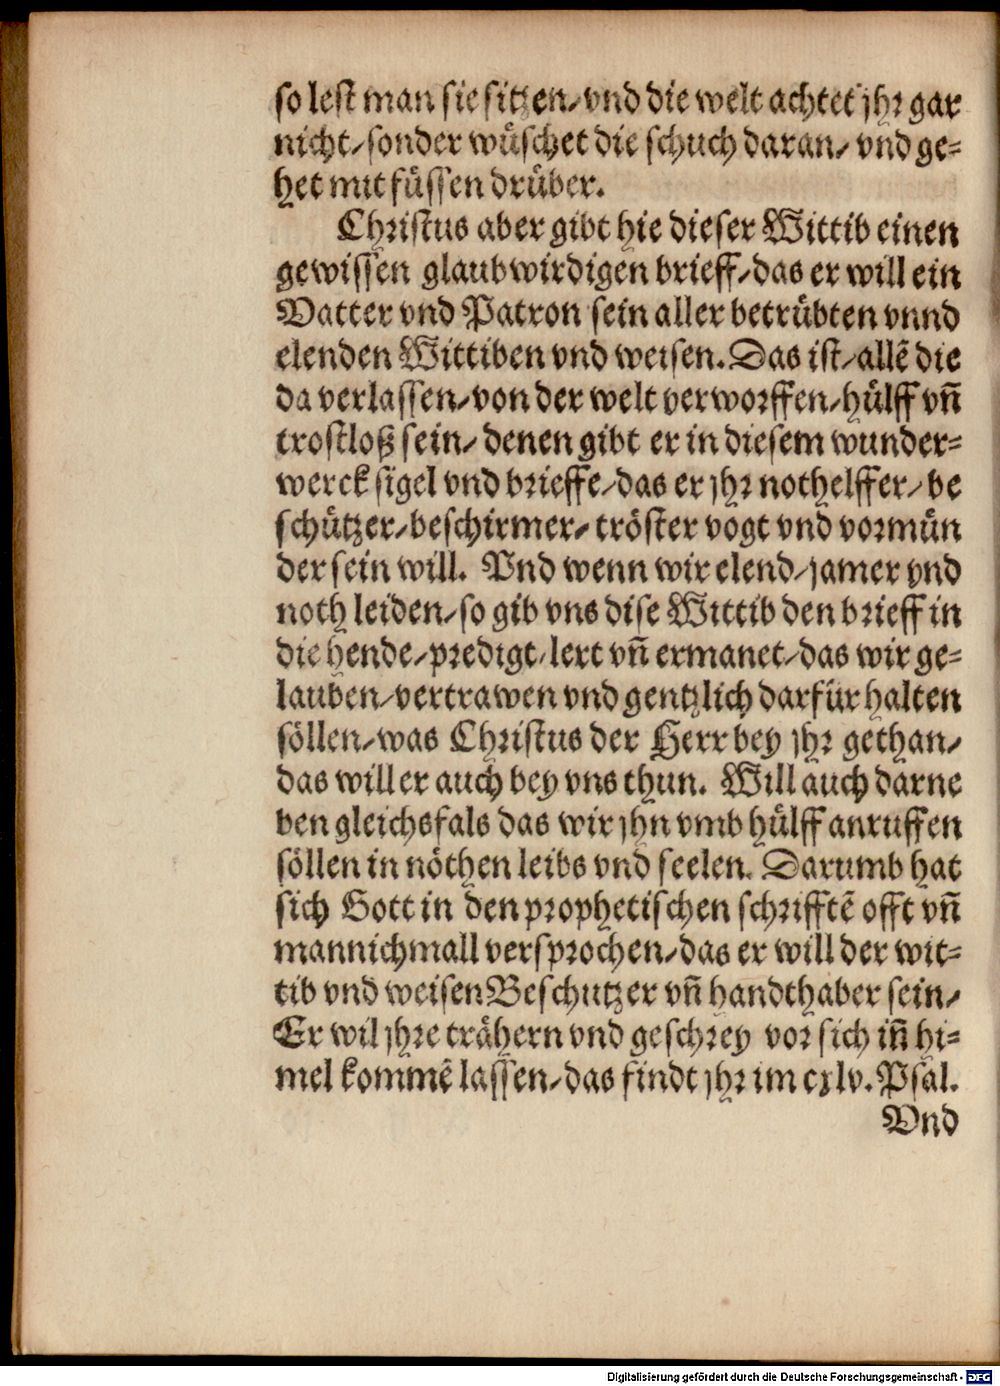 so lest man sie sitzen/ vnd die welt achtet jhr gar
nicht/ sonder wüschet die schuch daran/ vnd ge=
het mit füssen drüber.
Christus aber gibt hie dieser Wittib einen
gewissen glaubwirdigen brieff/ das er will ein
Vatter vnd Patron sein aller betrübten vnnd
elenden Wittiben vnd weisen. Das ist/ allẽ die
da verlassen/ von der welt verworffen/ hülff vñ
trostloß sein/ denen gibt er in diesem wunder=
werck sigel vnd brieffe/ das er jhr nothelffer/ be
schützer/ beschirmer/ tröster vogt vnd vormün
der sein will. Vnd wenn wir elend/ jamer vnd
noth leiden/ so gib vns dise Wittib den brieff in
die hende/ predigt/ lert vñ ermanet/ das wir ge=
lauben/ vertrawen vnd gentzlich darfür halten
söllen/ was Christus der Herr bey jhr gethan/
das will er auch bey vns thun. Will auch darne
ben gleichsfals das wir jhn vmb hülff anruffen
söllen in nöthen leibs vnd seelen. Darumb hat
sich Gott in den prophetischen schrifftẽ offt vñ
mannichmall versprochen/ das er will der wit=
tib vnd weisen Beschutzer vñ handthaber sein/
Er wil jhre trähern vnd geschrey vor sich iñ hi=
mel kommẽ lassen/ das findt jhr im cxlv. Psal.
Vnd
Digitalisierung gefördert durch die Deutsche Forschungsgemeinschaft - DFG